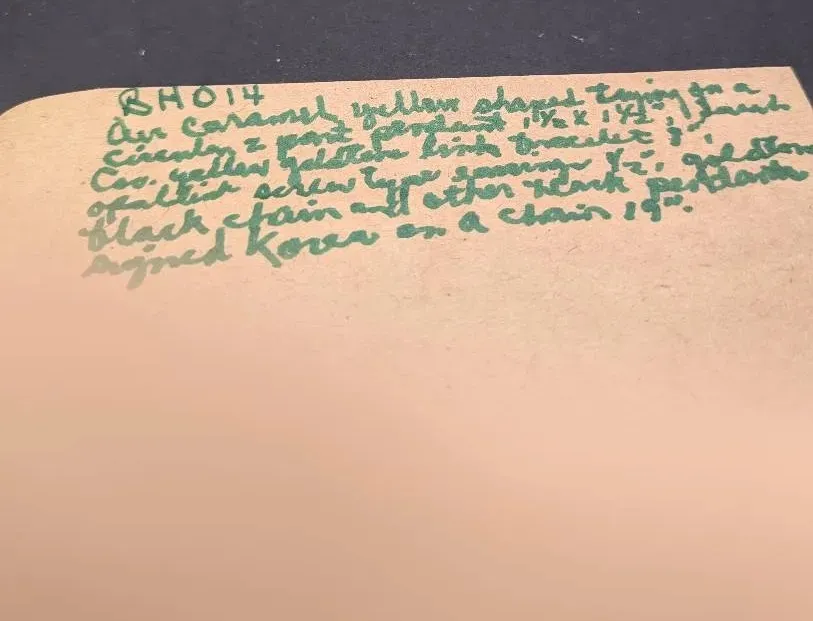 BH014
Caramel yellow shaped on a
circular 2 part pendant 1 1/2 x 1 1/2",
Coo. yellow goldtone link bracelet 7",
screw type earrings 1/2", goldtone
black chain and other pendants
signed Korea on a chain 19".